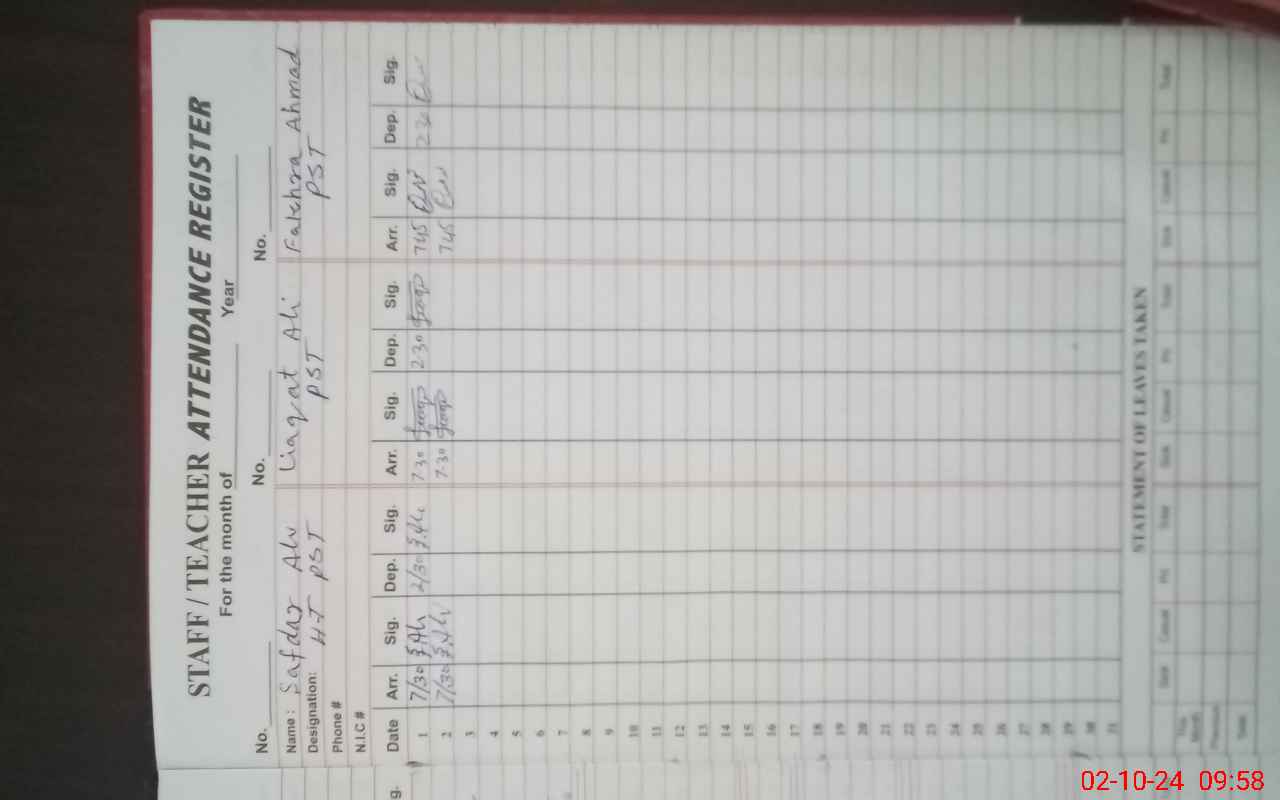 STAFF / TEACHER ATTENDANCE REGISTER
For the month of Year
No. No. No.
Name : Safdar Ali Liaqat Ali Fakhra Ahmad
Designation: H-T PST PST PST
Phone #
N.I.C #
Date Arr. Sig. Dep. Sig. Arr. Sig. Dep. Sig. Arr. Sig. Dep. Sig.
1 7/30 S.Ali 2/30 S.Ali 7.30 2.30 745 2 30
2 7/30 S.Ali 7.30 745
3
4
5
6
7
8
9
10
11
12
13
14
15
16
17
18
19
20
21
22
23
24
25
26
27
28
29
30
31
STATEMENT OF LEAVES TAKEN
Sick Casual Pri Total Sick Casual Pri Total Sick Casual Pri Total
This Month
Previous
Total
g.
02-10-24 09:58